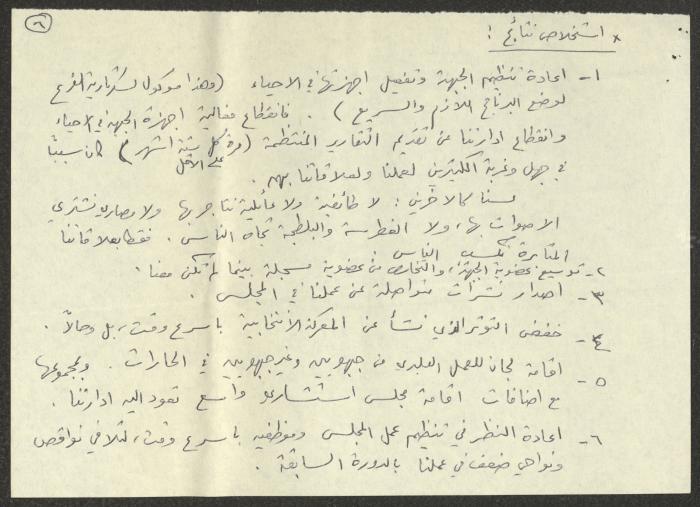 ٦
* استخلاص نتائج:
١- اعادة تنظيم الجبهة وتفعيل اجهزتها في الاحياء (وهذا موكول لسكرتارية الفرع
لوضع البرنامج اللازم والسريع). فانقطاع فعالية اجهزة الجبهة في الاحياء
وانقطاع ادارتنا عن تقديم التقارير المنتظمة (مرة كل ستة اشهر على الأقل) كان سببًا
في جهل وغربة الكثيرين لعملنا ولعلاقاتنا بهم.
لسنا كالآخرين: لا طائفية ولا عائلية نتاجر بها ولا مصاري نشتري
الاصوات بها، ولا الغطرسة والبلطجة تجاه الناس. فقط بعلاقاتنا
المثابرة نكسب الناس
٢- توسيع عضوية الجبهة، والتخلص من عضوية مسجلة بينما لم تكن معنا.
٣- اصدار نشرات متواصلة عن عملنا في المجلس.
٤- خفض التوتر الذي نشأ عن المعركة الانتخابية باسرع وقت، بل وحالاً.
٥- اقامة لجان للعمل البلدي من جبهويين وغير جبهويين في الحارات. ولمجموعها
مع اضافات اقامة مجلس استشاري واسع تعود اليه ادارتنا.
٦- اعادة النظر في تنظيم عمل المجلس وموظفيه باسرع وقت، لتلافي نواقص
ونواحي ضعف في عملنا بالدورة السابقة.